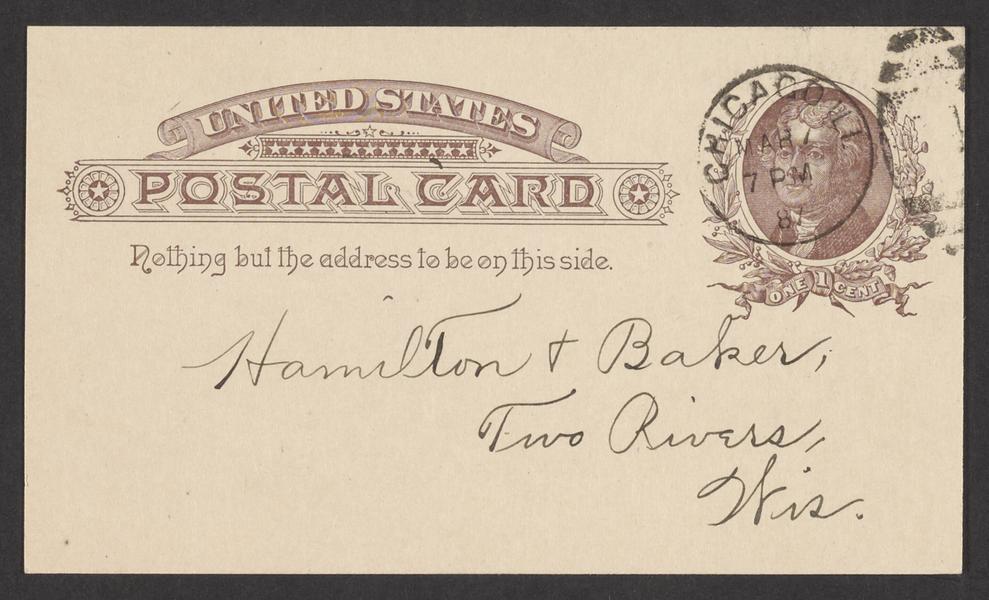 UNITED STATES
POSTAL CARD
Nothing but the address to be on this side.
CHICAGO ILL
MAR
7 PM
87
ONE 1 CENT
Hamilton & Baker,
Two Rivers,
Wis.